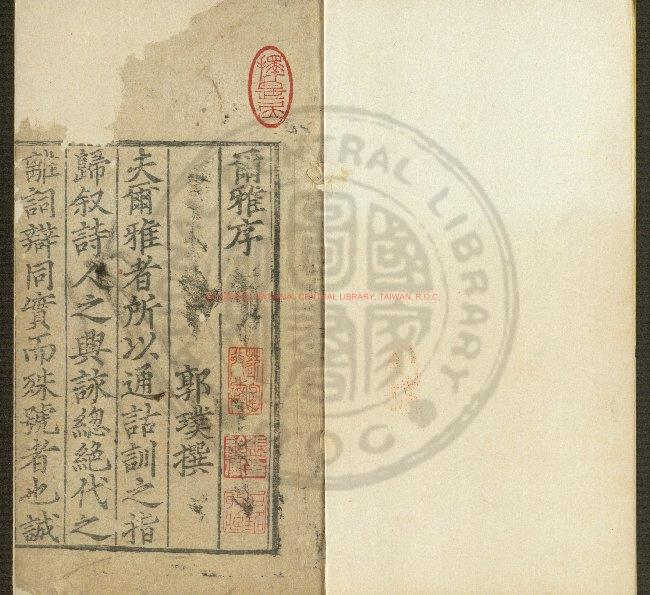 爾雅序
郭璞撰
夫爾雅者所以通詁訓之指
歸叙詩人之興詠緫絶代之
離詞辯同實而殊號者也誠
NATIONAL CENTRAL LIBRARY, TAIWAN, R.O.C.
CENTRAL LIBRARY